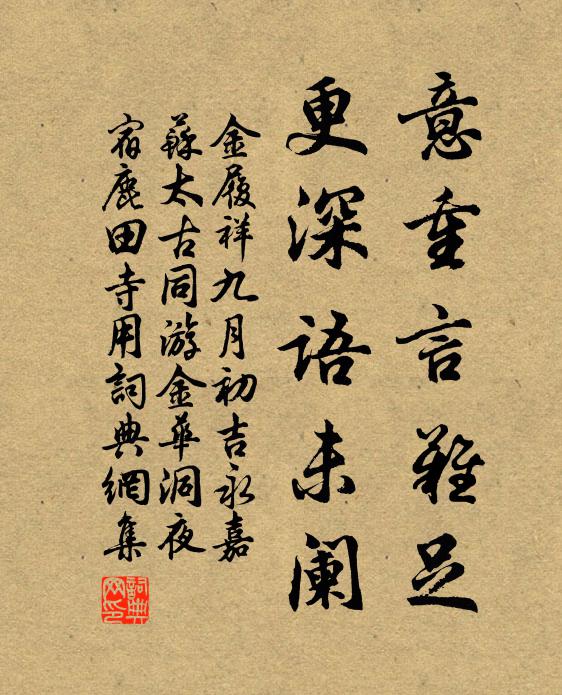 意重言難足
更深語未闌
金履祥九月初吉永嘉
蘇太古同游金華洞夜
宿鹿田寺用詞典網集
詞典
网印